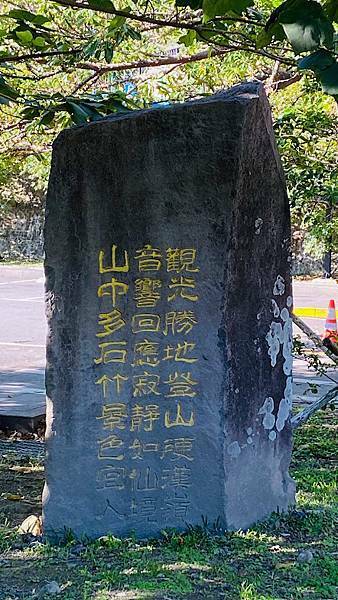 觀光勝地登山硬漢頂
音響回應寂靜如仙境
山中多石竹景色宜人